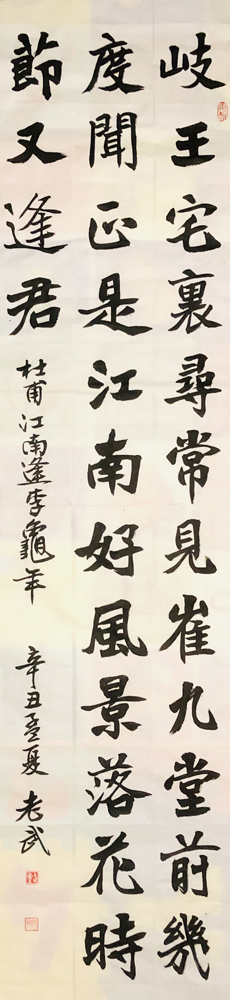 岐王宅裏尋常見崔九堂前幾
度聞正是江南好風景落花時
節又逢君
杜甫江南逢李龜年
辛丑孟夏 老武